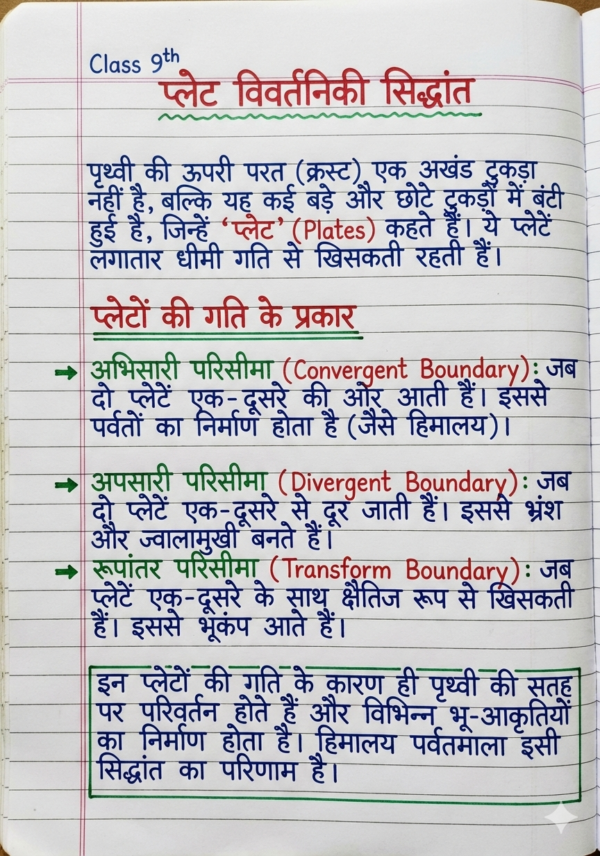 Class 9th
प्लेट विवर्तनिकी सिद्धांत
पृथ्वी की ऊपरी परत (क्रस्ट) एक अखंड टुकड़ा
नहीं है, बल्कि यह कई बड़े और छोटे टुकड़ों में बंटी
हुई है, जिन्हें ‘प्लेट’ (Plates) कहते हैं। ये प्लेटें
लगातार धीमी गति से खिसकती रहती हैं।
प्लेटों की गति के प्रकार
→ अभिसारी परिसीमा (Convergent Boundary): जब
दो प्लेटें एक-दूसरे की ओर आती हैं। इससे
पर्वतों का निर्माण होता है (जैसे हिमालय)।
→ अपसारी परिसीमा (Divergent Boundary): जब
दो प्लेटें एक-दूसरे से दूर जाती हैं। इससे भ्रंश
और ज्वालामुखी बनते हैं।
→ रूपांतर परिसीमा (Transform Boundary): जब
प्लेटें एक-दूसरे के साथ क्षैतिज रूप से खिसकती
हैं। इससे भूकंप आते हैं।
इन प्लेटों की गति के कारण ही पृथ्वी की सतह
पर परिवर्तन होते हैं और विभिन्न भू-आकृतियों
का निर्माण होता है। हिमालय पर्वतमाला इसी
सिद्धांत का परिणाम है।